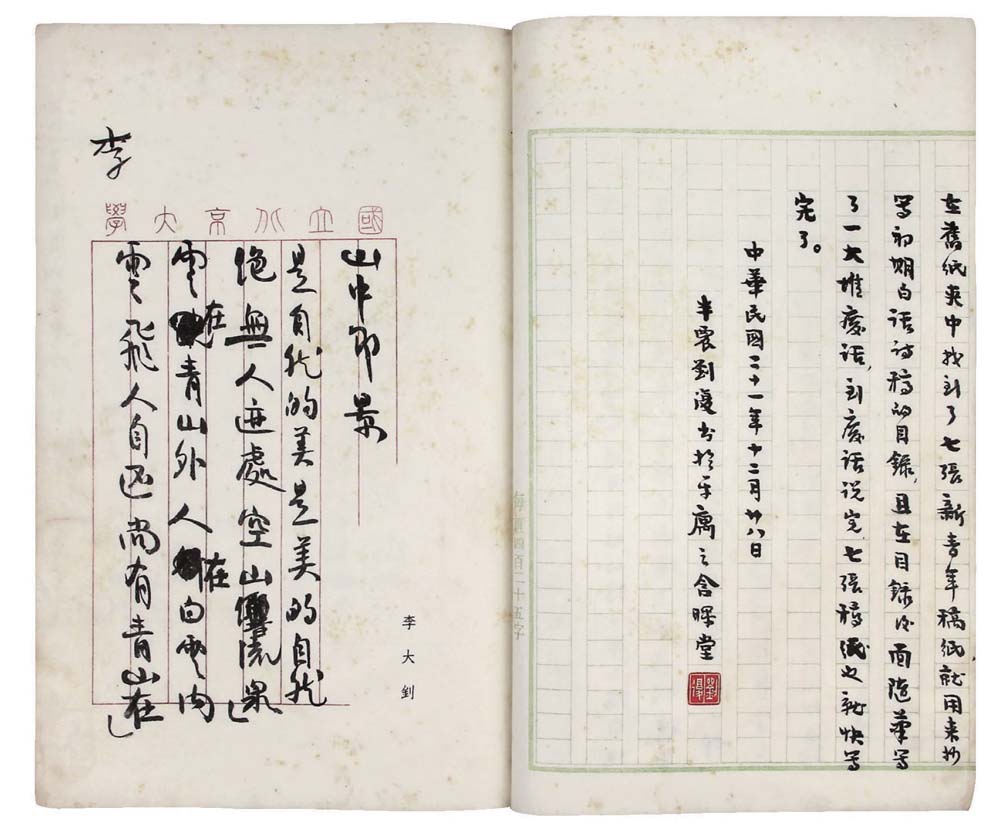 在舊紙夾中找到了七張新青年稿紙就用来抄
写初期白话诗稿的目録,且在目録后面随筆写
了一大堆廢话,到廢话说完,七張稿紙也就快写
完了。
中華民國二十一年十二月廿八日
半農劉復書於平寓之含暉堂
每頁四百二十五字
李大釗
國立北京大學
李
山中即景
是自然的美是美的自然
絶無人迹處空山響流泉
雲在青山外人在白雲内
雲飛人自还尚有青山在